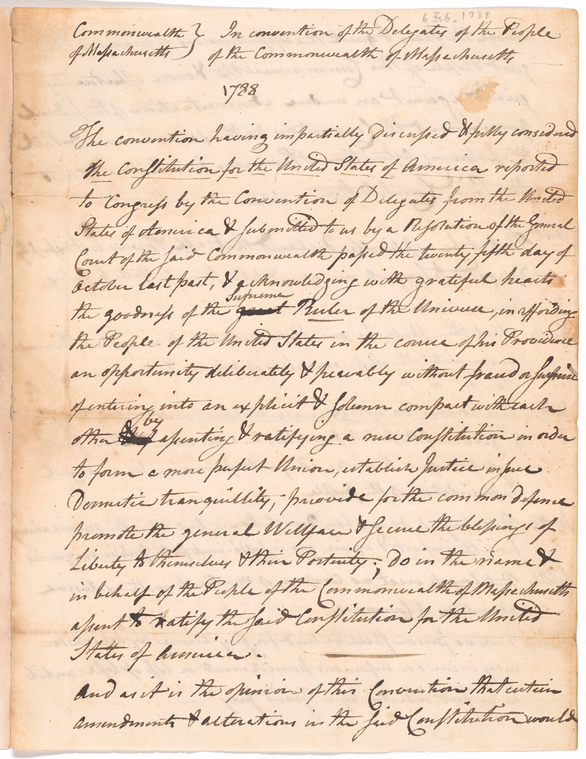 6 Feb. 1788
Commonwealth } In convention of the Delegates of the People
of Massachusetts } of the Commonwealth of Massachusetts
1788
The convention having impartially Discussed & fully considered
the Constitution for the United States of America reported
to Congress by the Convention of Delegates from the United
States of America & submitted to us by a Resolution of the General
Court of the said Commonwealth passed the twenty fifth day of
October last past, & acknowledging with grateful hearts
the goodness of the Supreme great Ruler of the Universe, in affording
the People of the United States in the course of his Providence
an opportunity deliberately & peaceably without fraud or surprise
of entering into an explicit & solemn compact with each
other by assenting & ratifying a new Constitution in order
to form a more perfect Union, establish Justice insure
Domestic tranquillity, provide for the common defence
promote the general Wellfare & secure the blessings of
Liberty to themselves & their Posterity; Do in the name &
in behalf of the People of the Commonwealth of Massachusetts
assent to & ratify the said Constitution for the United
States of America.
And as it is the opinion of this Convention that certain
amendments & alterations in the said Constitution would